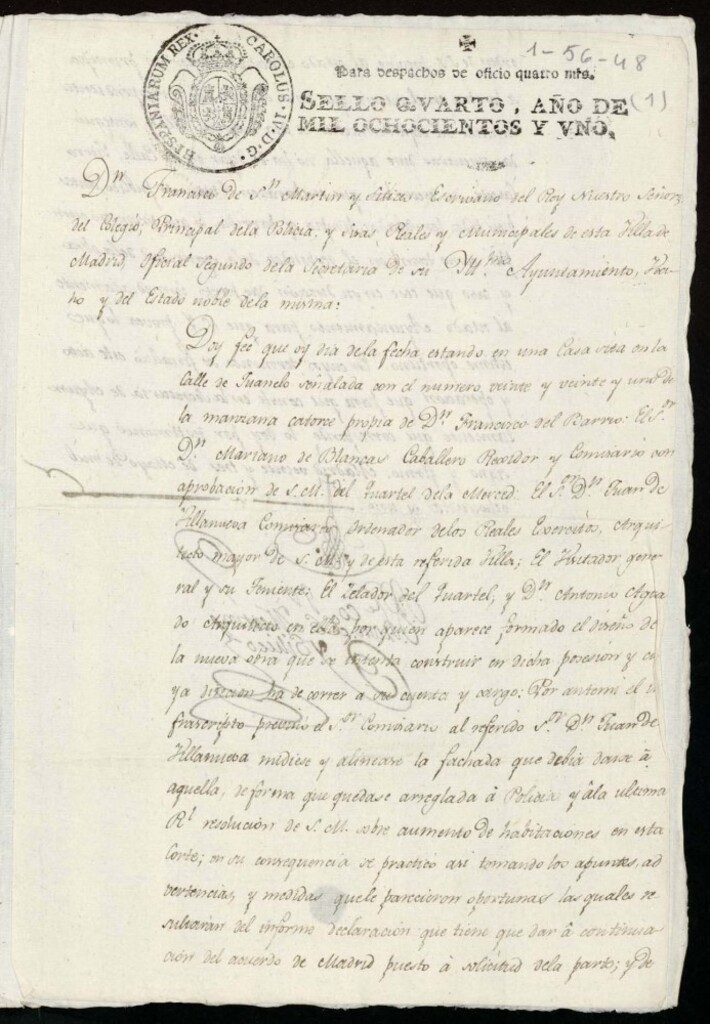 1-56-48
(1)
HISPANIARUM REX. CAROLUS. IV. D. G.
Para despachos de oficio quatro mrs.
SELLO QVARTO, AÑO DE
MIL OCHOCIENTOS Y VNO.
Dn. Francisco de Sn. Martin y Escrivano del Rey Nuestro Señor,
del Colegio, Principal dela Policia, y Reales y Municipales de esta Villa de
Madrid, Oficial Segundo dela Secretaria de su Ayuntamiento,
y del Estado noble dela misma:
Doy feé que oy dia dela fecha estando en una Casa sita en la
Calle de Juanelo señalada con el numero veinte y veinte y uno de
la manzana catorce propia de Dn. Francisco del Barrio: El Sr.
Dn. Mariano de Blancas Caballero Rexidor y Comisario con
aprobacion de S. M. del Quartel dela Merced: El Sr. Dn. Juan de
Villanueva Comisario Ordenador delos Reales Exercitos, Arqui-
tecto mayor de S. M. y de esta referida Villa; El Visitador gene-
ral y su Teniente: El Zelador del Quartel; y Dn. Antonio Agua-
do Arquitecto en esta por quien aparece formado el diseño de
la nueva obra que se intenta construir en dicha posesion y cu-
ya direcion ha de correr a su cuenta y cargo: Por antemi el in-
frascripto previno el Sr. Comisario al referido Sr. Dn. Juan de
Villanueva midiese y alinease la fachada que debia darse à
aquella, de forma que quedase arreglada à Policia y âla ultima
Rl. resolucion de S. M. sobre aumento de habitaciones en esta
Corte; en su consequencia se practicó asi tomando los apuntes, ad-
vertencias, y medidas que le parecieron oportunas las quales re-
sultaràn del informe declaracion que tiene que dar à continua-
cion del acuerdo de Madrid puesto à solicitud dela parte; y de